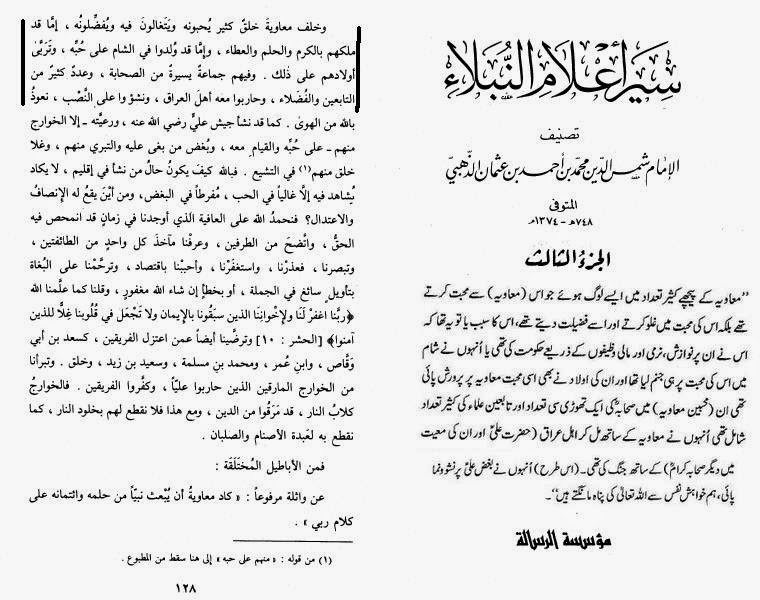 سير أعلام النبلاء
تصنيف
الإمام شمس الدين محمد بن أحمد بن عثمان الذهبي
المتوفى
٧٤٨هـ - ١٣٧٤م
الجزء الثالث
”معاویہ کے پیچھے کثیر تعداد میں ایسے لوگ ہوئے جو اس (معاویہ) سے محبت کرتے
تھے بلکہ اس کی محبت میں غلو کرتے اور اسے فضیلت دیتے تھے، اس کا سبب یا تو یہ تھا کہ
اس نے ان پر نوازش، نرمی اور مالی وظیفوں کے ذریعے حکومت کی تھی یا اُنہوں نے شام
میں اس کی محبت پر ہی جنم لیا تھا اور ان کی اولاد نے بھی اسی محبت معاویہ پر پرورش پائی
تھی ان (محبین معاویہ) میں صحابہؓ کی ایک تھوڑی سی تعداد اور تابعین علماء کی کثیر تعداد
شامل تھی اُنہوں نے معاویہ کے ساتھ مل کر اہل عراق (حضرت علیؑ اور ان کی معیت
میں دیگر صحابہ کرامؓ) کے ساتھ جنگ کی تھی۔ (اس طرح) اُنہوں نے بغض علیؑ پر نشوونما
پائی، ہم خواہش نفس سے اللہ تعالیٰ کی پناہ مانگتے ہیں“۔
مؤسسة الرسالة
وخلف معاويةَ خلقٌ كثير يُحبونه ويَتَغالَونَ فيه ويُفضِّلونُه ، إمَّا قد
ملكهم بالكرم والحلم والعطاء ، وإمَّا قد وُلدوا في الشام على حُبِّه ، وتَرَبَّى
أولادهم على ذلك . وفيهم جماعةٌ يسيرةٌ من الصحابة ، وعددٌ كثيرٌ من
التابعين والفُضَلاء ، وحاربوا معه أهلَ العراق ، ونشؤوا على النَّصْب ، نعوذُ
بالله من الهوىٰ . كما قد نشأ جيشُ عليٍّ رضي الله عنه ، ورعيَّته ـ إلا الخوارج
منهم ـ على حُبِّه والقيامِ معه ، وبُغض من بغى عليه والتبري منهم ، وغلا
خلق منهم(١) في التشيع . فبالله كيفَ يكونُ حالُ من نشأ في إقليم ، لا يكاد
يُشاهد فيه إلَّا غالياً في الحب ، مُفرطاً في البغض، ومن أيْنَ يقعُ له الإنصافُ
والاعتدال؟ فنحمدُ الله على العافية الذي أوجدنا في زمانٍ قد انمحص فيه
الحقُّ ، واتَّضحَ من الطرفين ، وعرفْنا مآخذَ كل واحدٍ من الطائفتين ،
وتبصرنا ، فعذرْنا ، واستغفَرْنا ، وأحببْنا باقتصاد ، وترحَّمْنا على البُغاة
بتأويلٍ سائغٍ في الجملة ، أو بخطإٍ إن شاء الله مغفورٍ ، وقلنا كما علَّمنا الله
﴿ربَّنا اغفرْ لَنَا ولإِخْوانِنَا الذين سبَقُونا بالإيمان ولا تَجْعَل في قُلُوبنا غِلًّا للذين
آمنوا﴾ [ الحشر : ١٠ ] وترضَّينا أيضاً عمن اعتزل الفريقين ، كسعد بن أبي
وقَّاص ، وابنِ عُمر ، ومحمد بنِ مسلمة ، وسعيد بن زيد ، وخلق . وتبرأنا
من الخوارج المارقين الذين حاربوا عليّاً ، وكفَّروا الفريقين . فالخوارجُ
كلابُ النار ، قد مَرَقُوا من الدين ، ومع هذا فلا نقطع لهم بخلود النار ، كما
نقطع به لعَبدة الأصنام والصلبان .
فمن الأباطيل المُختَلَقَة :
عن واثلة مرفوعاً : « كاد معاويةُ أن يُبْعثَ نبيّاً من حلمه وائتمانه على
كلام ربي » .
(١) من قوله : « منهم على حبه » إلى هنا سقط من المطبوع .
١٢٨